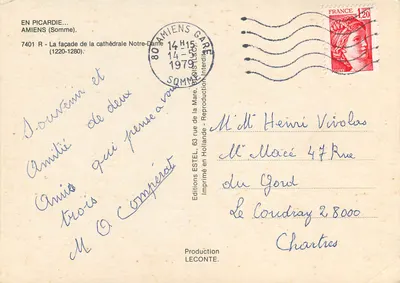 EN PICARDIE...
AMIENS (Somme).
7401 R - La façade de la cathédrale Notre-Dame
(1220-1280).
80 AMIENS GARE
14H15
14-9
1979
SOMME
FRANCE
1,20
Souvenir et
Amitié de deux
Amis qui pense a vous
trois
M O Compérat
Editions ESTEL, 63 rue de la Mare,
Imprimé en Hollande - Reproduction Interdite
M M Henri Vivolas
Mr Macé 47 Rue
du Gord
Le Coudray 28000
Chartres
Production
LECONTE.